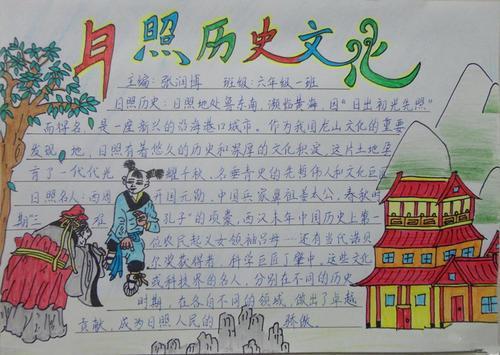 日照历史文化
主编：张润博 班级：六年级一班
日照历史：日照地处鲁东南，濒临黄海，因“日出初光先照”
而得名，是一座新兴的沿海港口城市。作为我国龙山文化的重要
发现地，日照有着悠久的历史和深厚的文化积淀，这片土地孕
育了一代代光耀千秋，名垂青史的先哲伟人和文化巨匠
日照名人：西周开国元勋，中国兵家鼻祖姜太公，春秋时
期“三 孔子”的项橐，西汉末年中国历史上第一
位农民起义女领袖吕母……还有当代诺贝
尔奖获得者，科学巨匠丁肇中，这些文化
或科技界的名人，分别在不同的历史
时期，在各自不同的领域，做出了卓越
贡献，成为日照人民的 骄傲。